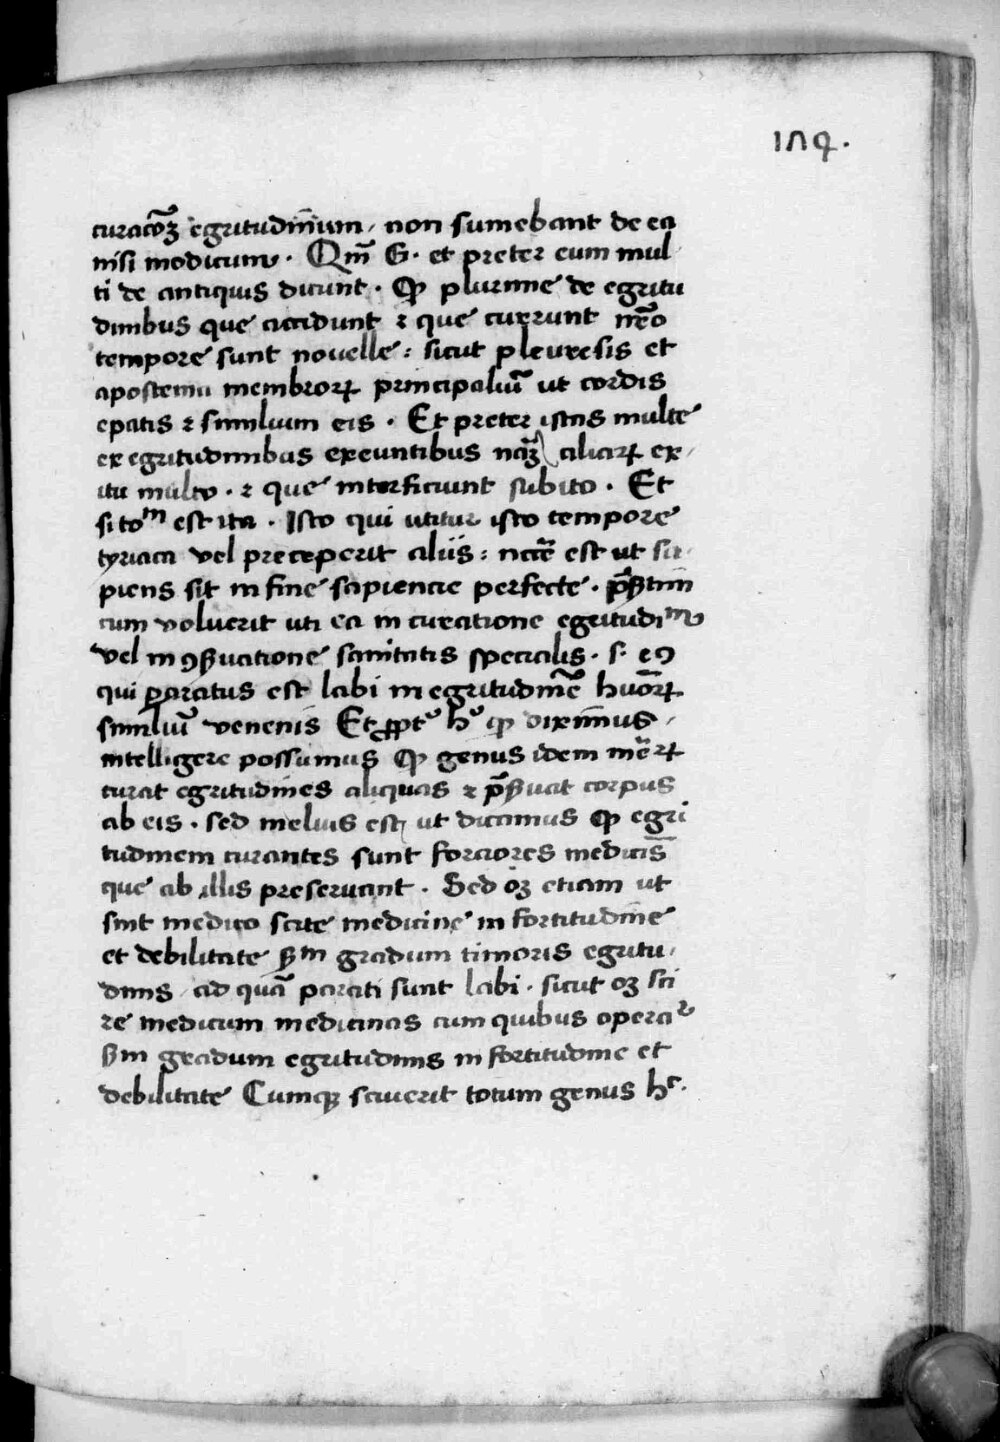 179.
curacõꝫ egritudinũm, non sumebant de ea
nisi modicum. Qm̃ G. et preter eum mul
ti de antiquis dicunt. qꝫ plurime de egritu
dinibus que accidunt ⁊ que currunt nr̃o
tempore sunt nouelle: sicut pleuresis et
apostema membroꝝ principaliũ ut cordis
epatis ⁊ similium eis. Et preter istas multe
ex egritudinibus exeuntibus aliaꝝ ex,
itu multo. ⁊ que interficiunt subito. Et
si toᵐ est ita. Isto qui utitur isto tempore
tyriaca vel preceperit aliis: ncc̃e est ut sa,
piens sit in fine sapiencie perfecte.
cum voluerit uti ea in curatione egritudiⁿⁱˢ
vel in ꝯẜuatione sanitatis specialis. s. eꝯ
qui paratus est labi in egritudinẽ huõꝝ
similiũ venenis Et ꝓptᵉ hᵒ qꝫ diximus,
intelligere possumus qꝫ genus idem
curat egritudines aliquas ⁊ p̃ẜuat corpus
ab eis. sed melius est ut dicamus qꝫ egri
tudinem curantes sunt forciores medicis̃
que ab illis preseruant. Sed oꝫ etiam ut
sint medico scite medicine in fortitudine
et debilitate ẜm gradum timoris egritu,
dinis ad quã parati sunt labi. sicut oꝫ sci
re medicum medicinas cum quibus operaʳ
ẜm gradum egritudinis in fortitudine et
debilitate Cumqꝫ sciuerit totum genus hᶜ.